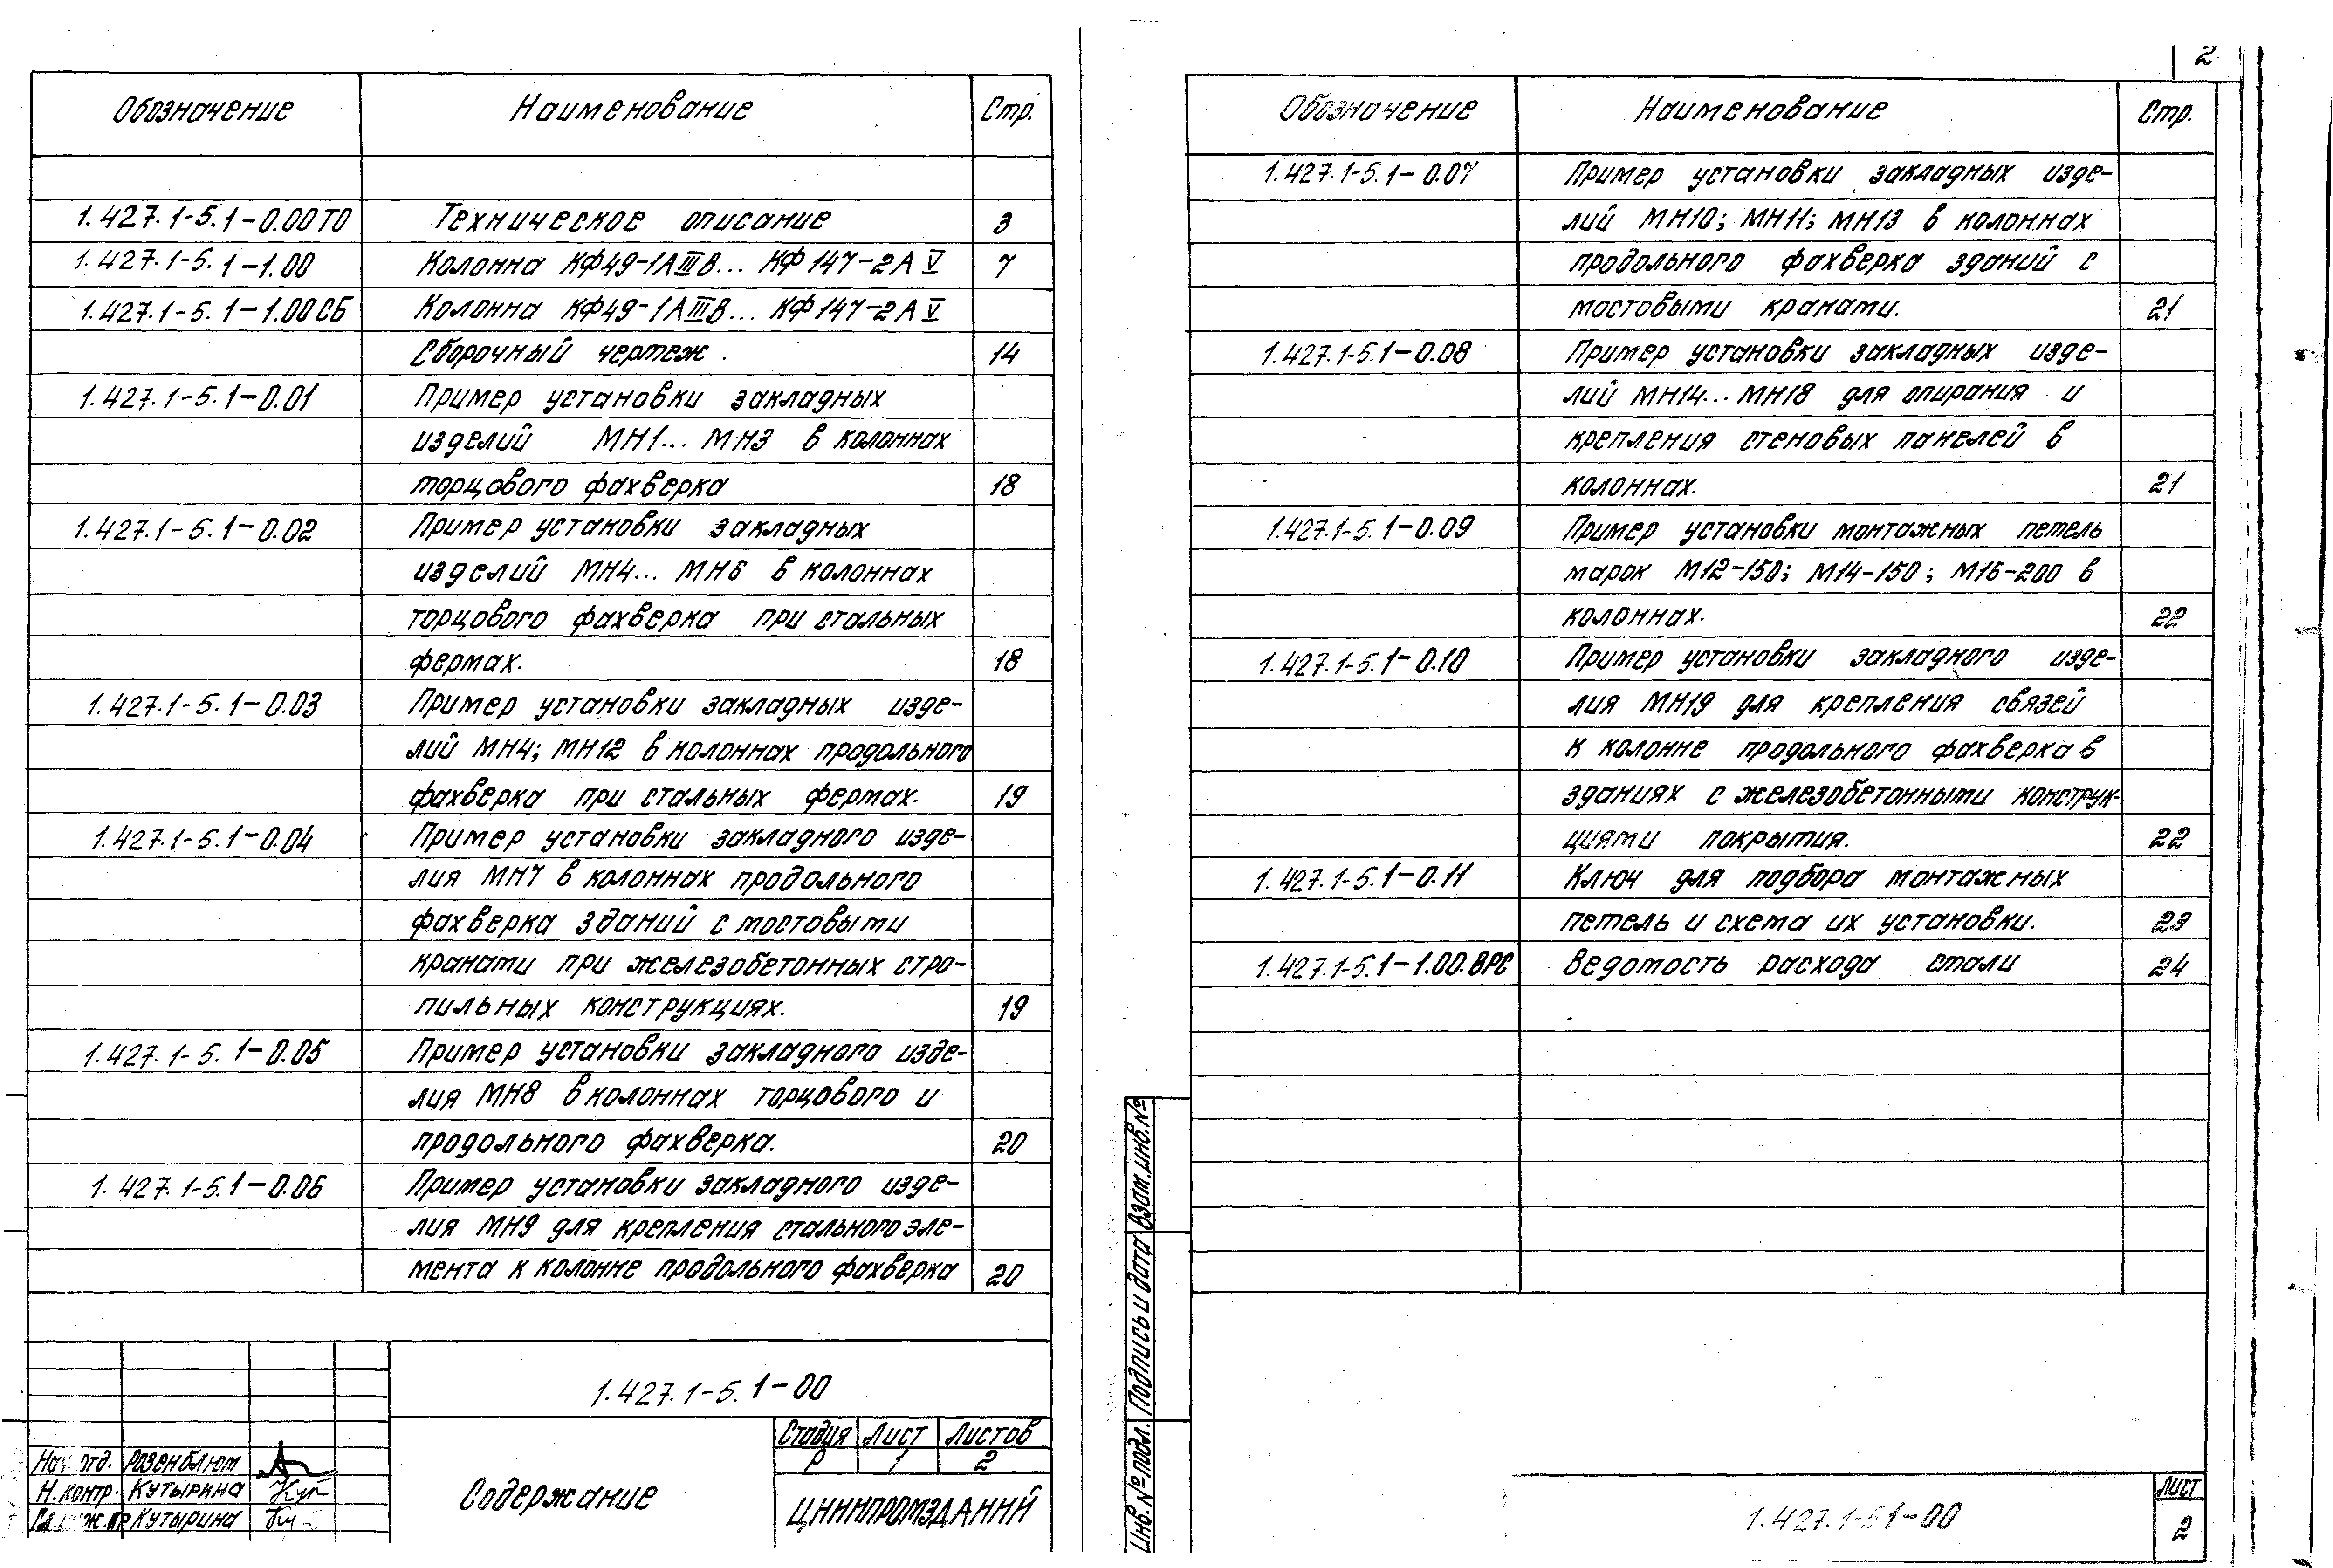 Обозначение Наименование Стр.
1.427.1-5.1-0.00ТО Техническое описание 3
1.427.1-5.1-1.00 Колонна КФ49-1АIIIв... КФ147-2АV 7
1.427.1-5.1-1.00СБ Колонна КФ49-1АIIIв... КФ147-2АV
Сборочный чертеж. 14
1.427.1-5.1-0.01 Пример установки закладных
изделий МН1... МН3 в колоннах
торцового фахверка 18
1.427.1-5.1-0.02 Пример установки закладных
изделий МН4... МН6 в колоннах
торцового фахверка при стальных
фермах. 18
1.427.1-5.1-0.03 Пример установки закладных изде-
лий МН4; МН12 в колоннах продольного
фахверка при стальных фермах. 19
1.427.1-5.1-0.04 Пример установки закладного изде-
лия МН7 в колоннах продольного
фахверка зданий с мостовыми
кранами при железобетонных стро-
пильных конструкциях. 19
1.427.1-5.1-0.05 Пример установки закладного изде-
лия МН8 в колоннах торцового и
продольного фахверка. 20
1.427.1-5.1-0.06 Пример установки закладного изде-
лия МН9 для крепления стального эле-
мента к колонне продольного фахверка 20
1.427.1-5.1-00
Стадия Лист Листов
Р 1 2
Нач. отд. Розенблюм
Н. контр. Кутырина
Гл. инж. пр Кутырина
Содержание
ЦНИИПРОМЗДАНИЙ
2
Обозначение Наименование Стр.
1.427.1-5.1-0.07 Пример установки закладных изде-
лий МН10; МН11; МН13 в колоннах
продольного фахверка зданий с
мостовыми кранами. 21
1.427.1-5.1-0.08 Пример установки закладных изде-
лий МН14... МН18 для опирания и
крепления стеновых панелей в
колоннах. 21
1.427.1-5.1-0.09 Пример установки монтажных петель
марок М12-150; М14-150; М16-200 в
колоннах. 22
1.427.1-5.1-0.10 Пример установки закладного изде-
лия МН19 для крепления связей
к колонне продольного фахверка в
зданиях с железобетонными конструк-
циями покрытия. 22
1.427.1-5.1-0.11 Ключ для подбора монтажных
петель и схема их установки. 23
1.427.1-5.1-1.00.ВРС Ведомость расхода стали 24
Взам. инв. №
Подпись и дата
Инв. № подл.
1.427.1-5.1-00
Лист
2